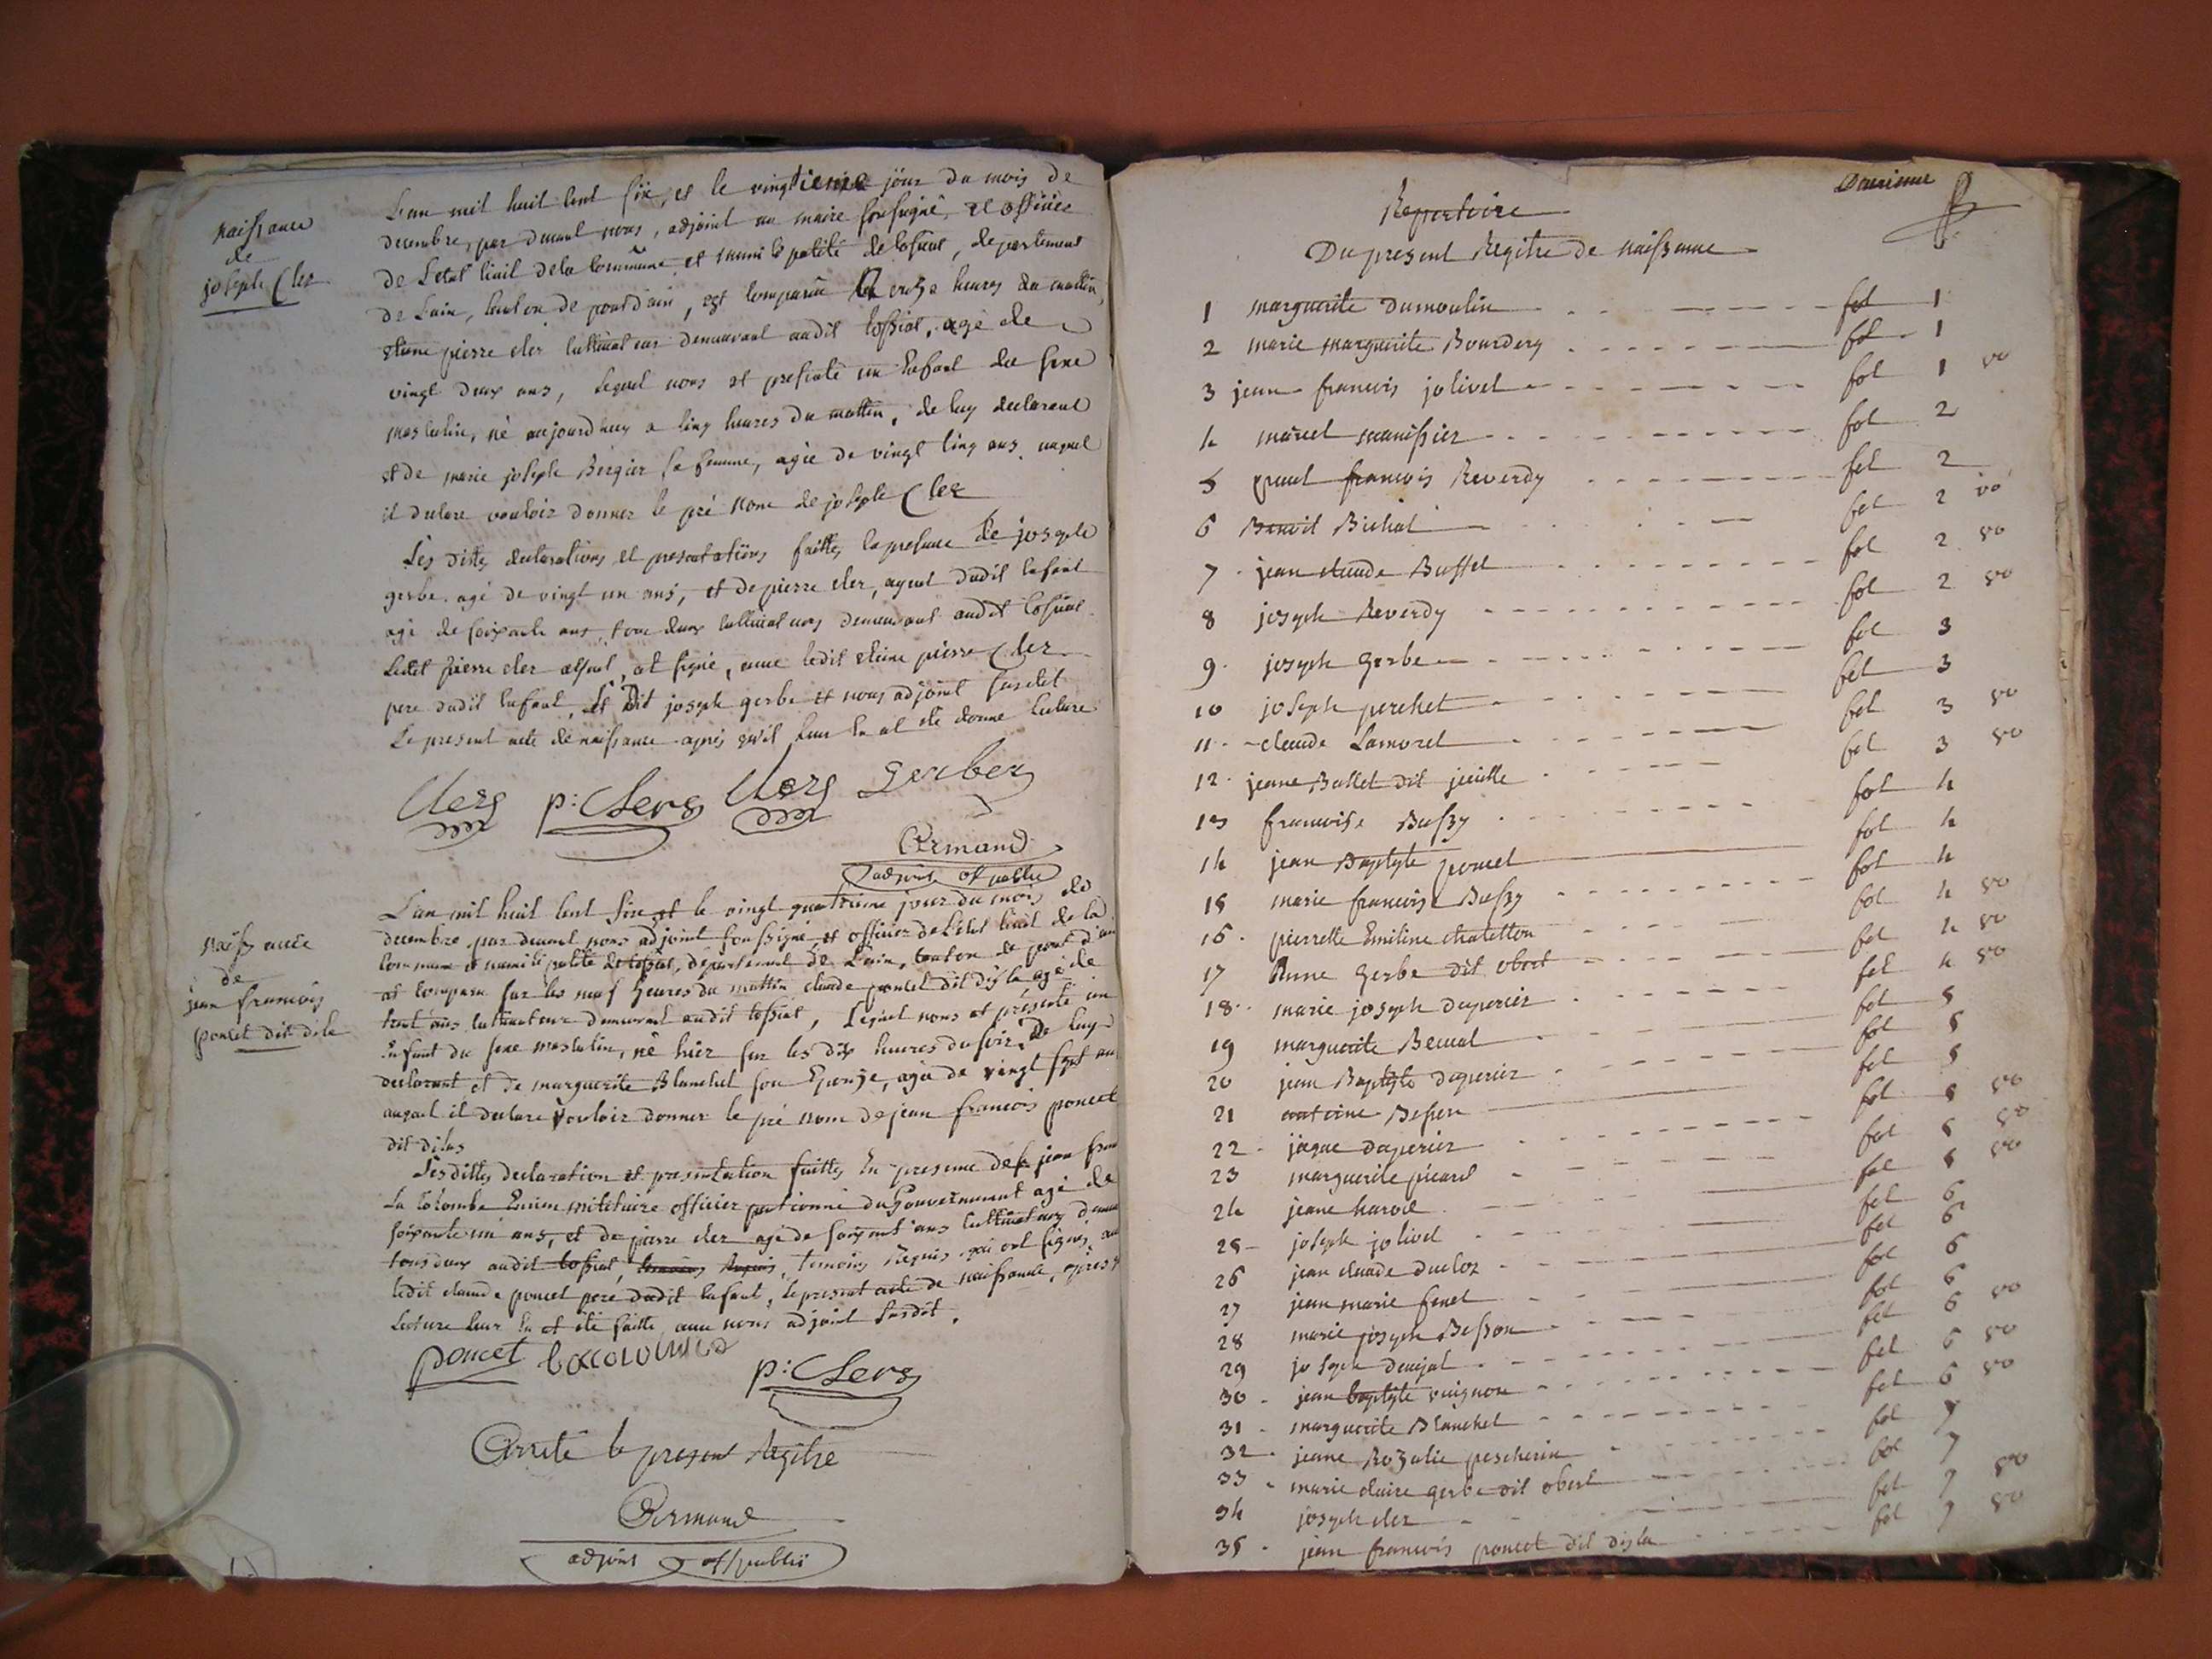 naissance
de
joseph Cler
L'an mil huit cent six, et le vingtieme jour du mois de
decembre, par devant nous, adjoint au maire soussigné, et officier
de Letat Civil de la Commune et municipalité de tossiat, departement
de Lain, Canton de pont d'ain, est comparu heures du mattin,
etiene pierre cler Cultivateur demeurant audit tossiat, agé de
vingt deux ans, Lequel nous at presenté un Enfant du sexe
masculin, né aujourdhuy a Cinq heures du mattin, de luy declarant
et de marie joseph Bergier sa femme, agée de vingt Cinq ans auquel
il declare vouloir donner le pré nom de joseph Cler
Les dittes declarations et presentations faittes En presence de joseph
gerbe agé de vingt un ans, et de pierre cler, ayeul dudit Enfant
agé de soixante ans, tous deux Cultivateurs demeurant audit tossiat
Ledit pierre cler ayeul, at signé, avec ledit etiene pierre Cler
pere dudit Enfant, Le Dit joseph gerbe et nous adjoint susdit
Le present acte de naissance apres qu'il Leur En at eté donné Lecture
Clerg p: Clerg Clerg Gerbe
Armand
adjoint of public
naissance
de
jean francois
poncet dit disla
L'an mil huit Cent Six et le vingt quatrieme jour du mois de
decembre par devant nous adjoint soussigné, et officier de Letat Civil de la
Commune et municipalité de tossiat, departement de Lain, Canton de pont d'ain
at comparu sur les neuf heures du mattin claude poncet dit disla agé de
trent ans Cultivateur demeurant audit tossiat, Lequel nous at présenté un
Enfant du sexe masculin, né hier sur les dix heures du soir, De Luy
declarant et de marguerite Blanchet son Epouse, agée de vingt sept ans
auquel il declare vouloir donner le pré nom de jean francois poncet
dit dislas
Lesdittes declaration et presentation faittes En presence de jean
La Colombe Encien militaire officier pentionné du Gouvernement agé de
soixante un ans, et de pierre cler agé de soixant ans Cultivateurs
tous deux audit tossiat, temoins Requis qui ont signés
ledit claude poncet pere dudit Enfant, Le present acte de naissance, apres
Lecture Leur En at eté faitte avec nous adjoint susdit.
poncet lacolombe
p: Clerg
Arreté le present Régitre
Armand
adjoint of public
Douzieme
Repertoire
Du present Regitre de naissance
1 marguerite Dumoulin fol 1
2 marie marguerite Bourdery fol 1
3 jean francois jolivet fol 1 vo
4 marcel manissier fol 2
5 paul francois Reverdy fol 2
6 Benoit Bichat fol 2 vo
7 jean claude Buffet fol 2 vo
8 joseph Reverdy fol 2 vo
9 joseph Gerbe fol 3
10 joseph perchet fol 3
11 claude Lamorel fol 3 vo
12 jeane Ballet dit fol 3 vo
13 francoise Bussy fol 4
14 jean Baptiste poncet fol 4
15 marie francoise Bussy fol 4
16 pierrette Emiline chatetton fol 4 vo
17 Anne Gerbe dit obert fol 4 vo
18 marie joseph duperier fol 4 vo
19 marguerite Bernal fol 5
20 jean Baptiste duperier fol 5
21 antoine Besson fol 5
22 jaque duperier fol 5 vo
23 marguerite picard fol 5 vo
24 jeane fol 5 vo
25 joseph jolivet fol 6
26 jean claude ducloz fol 6
27 jean marie fenet fol 6
28 marie joseph Besson fol 6
29 joseph fol 6 vo
30 jean baptiste vuignon fol 6 vo
31 marguerite Blanchet fol 6 vo
32 jeane Rozalie pescherin fol 7
33 marie claire gerbe dit obert fol 7
34 joseph cler fol 7 vo
35 jean francois poncet dit disla fol 7 vo